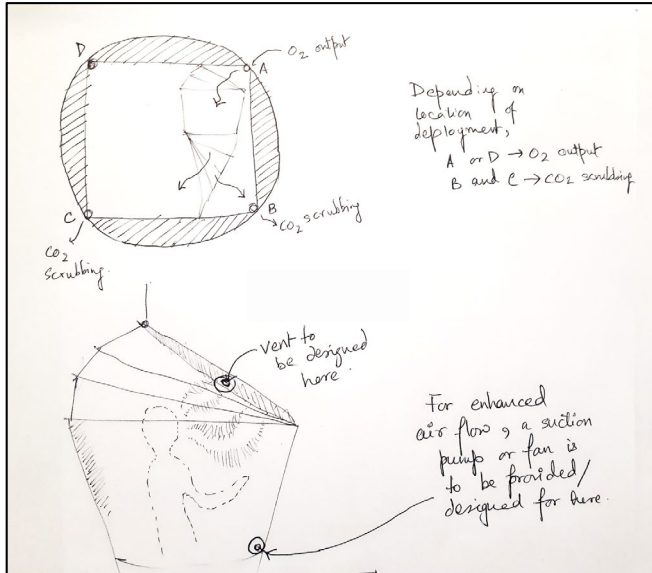 D
O₂ output
A
B
CO₂ scrubbing
C
CO₂
scrubbing.
Depending on
location of
deployment,
A or D → O₂ output
B and C → CO₂ scrubbing
vent to
be designed
here.
For enhanced
air flow, a suction
pump or fan is
to be provided/
designed for here.